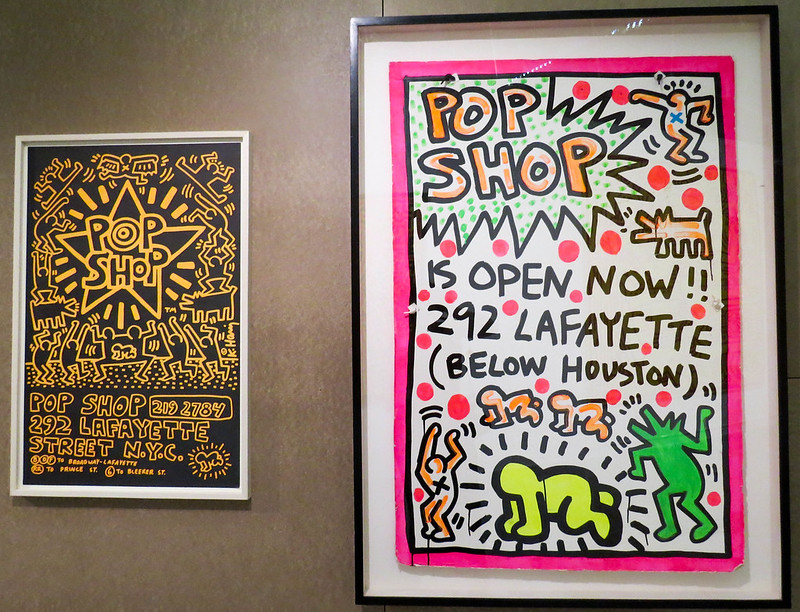 POP
SHOP
TM
K. Haring
POP SHOP 219 2784
292 LAFAYETTE
STREET N.Y.C.
B D F TO BROADWAY-LAFAYETTE
RR TO PRINCE ST. 6 TO BLEEKER ST.
POP
SHOP
IS OPEN NOW!!
292 LAFAYETTE
(BELOW HOUSTON)